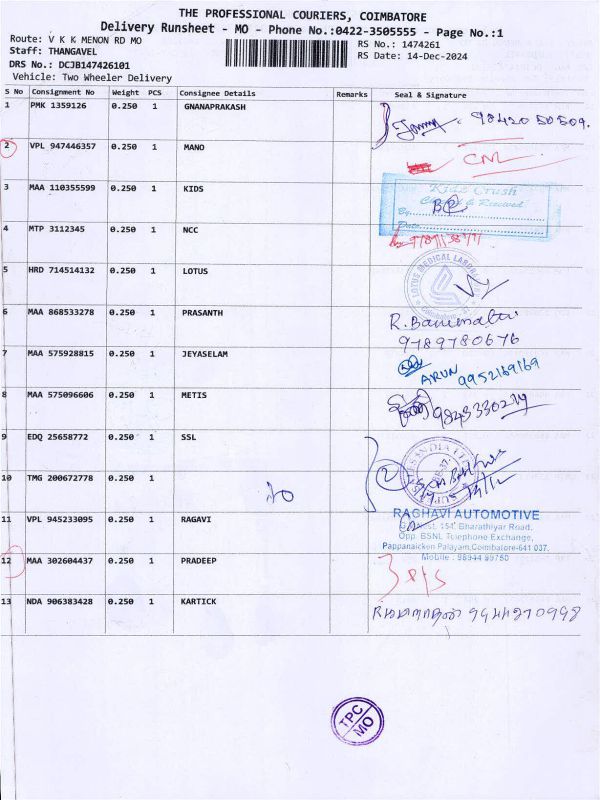 THE PROFESSIONAL COURIERS, COIMBATORE
Delivery Runsheet - MO - Phone No.:0422-3505555 - Page No.:1
Route: V K K MENON RD MO
RS No.: 1474261
Staff: THANGAVEL
RS Date: 14-Dec-2024
DRS No.: DCJB147426101
Vehicle: Two Wheeler Delivery
S No Consignment No Weight PCS Consignee Details Remarks Seal & Signature
1 PMK 1359126 0.250 1 GNANAPRAKASH
98420 50509.
2 VPL 947446357 0.250 1 MANO
CNL
3 MAA 110355599 0.250 1 KIDS
Kidz Crush
& Received
By
Date
4 MTP 3112345 0.250 1 NCC
5 HRD 714514132 0.250 1 LOTUS
LOTUS MEDICAL
Coimbatore
6 MAA 868533278 0.250 1 PRASANTH
R. Banumathi
9789780676
7 MAA 575928815 0.250 1 JEYASELAM
ARUN 9952169169
8 MAA 575096606 0.250 1 METIS
9843330219
9 EDQ 25658772 0.250 1 SSL
2
10 TMG 200672778 0.250 1
11 VPL 945233095 0.250 1 RAGAVI
RAGHAVI AUTOMOTIVE
154, Bharathiyar Road,
Opp. BSNL Telephone Exchange,
Pappanaicken Palayam, Coimbatore-641 037.
Mobile : 98944 99750
12 MAA 302604437 0.250 1 PRADEEP
13 NDA 906383428 0.250 1 KARTICK
9944270998
TPC
MO